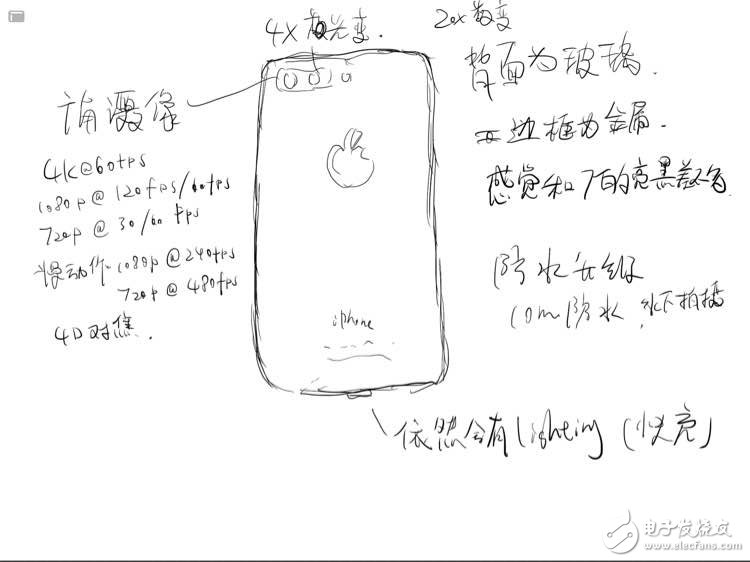 4X光变.
20x数变
背面为玻璃.
边框为金属.
感觉和7的亮黑差不多.
摄像
4K@60fps
1080p @ 120fps/60fps
720p @ 30/60 fps
慢动作 1080p @ 240fps
720p @ 480fps
4D对焦.
防水
10m防水,水下拍摄
iphone
依然会有Lighting (快充)
电子发烧友
www.elecfans.com